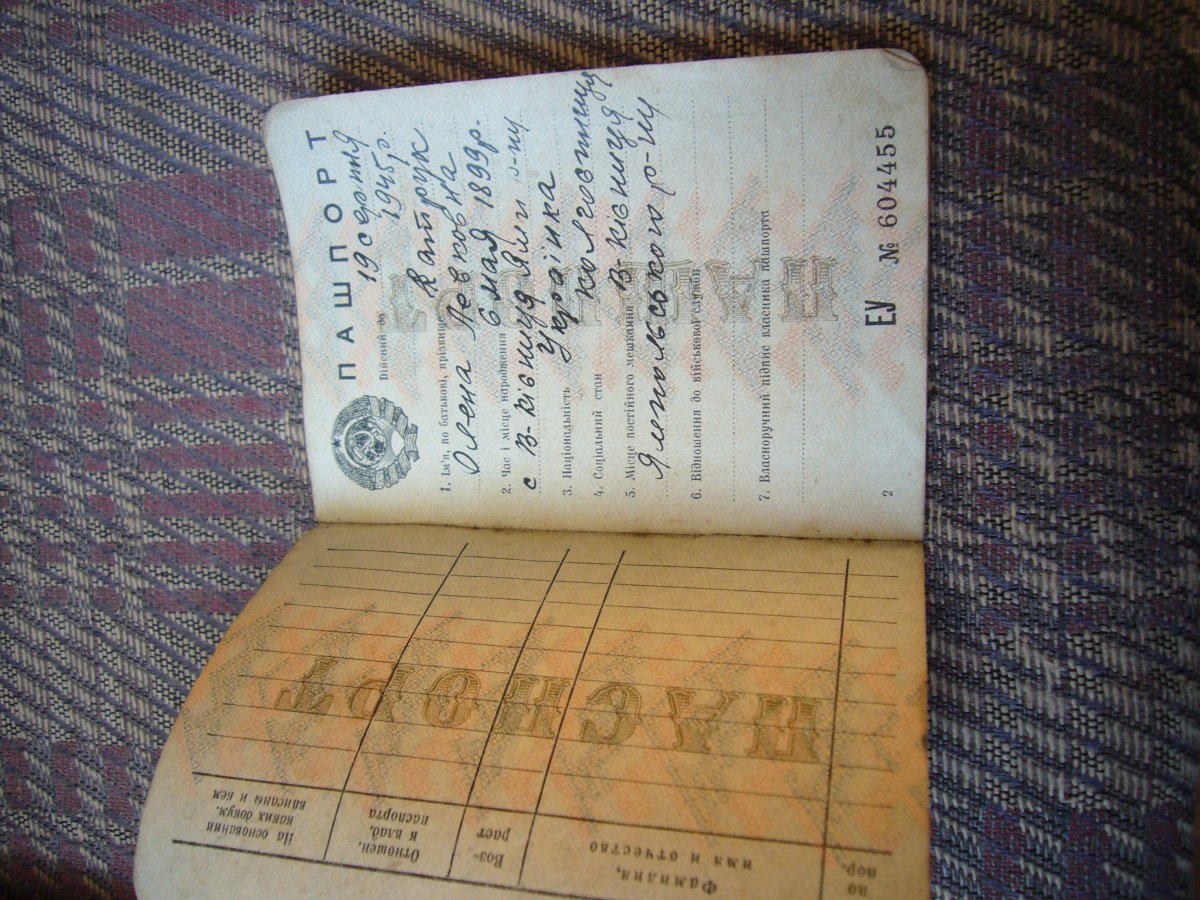 ПАШПОРТ
Дійсний до 19 серпня
1945 р.
1. Ім'я, по батькові, прізвище Катрук
Олена Левковна
2. Час і місце народження 6 мая 1899 р.
с В-Кісниця Ямп р-ну
3. Національність Українка
4. Соціальний стан колгоспниця
5. Місце постійного мешкання В-Кісниця
Ямпольського р-ну
6. Відношення до військової служби
7. Власноручний підпис власника пашпорта
2
ЕУ № 604455
ПАСПОРТ
по
пор.
Фамилия,
имя и отчество
Воз-
раст
Отношен.
к влад.
паспорта
На основании
каких докум.
вписаны и кем
ПАСПОРТ